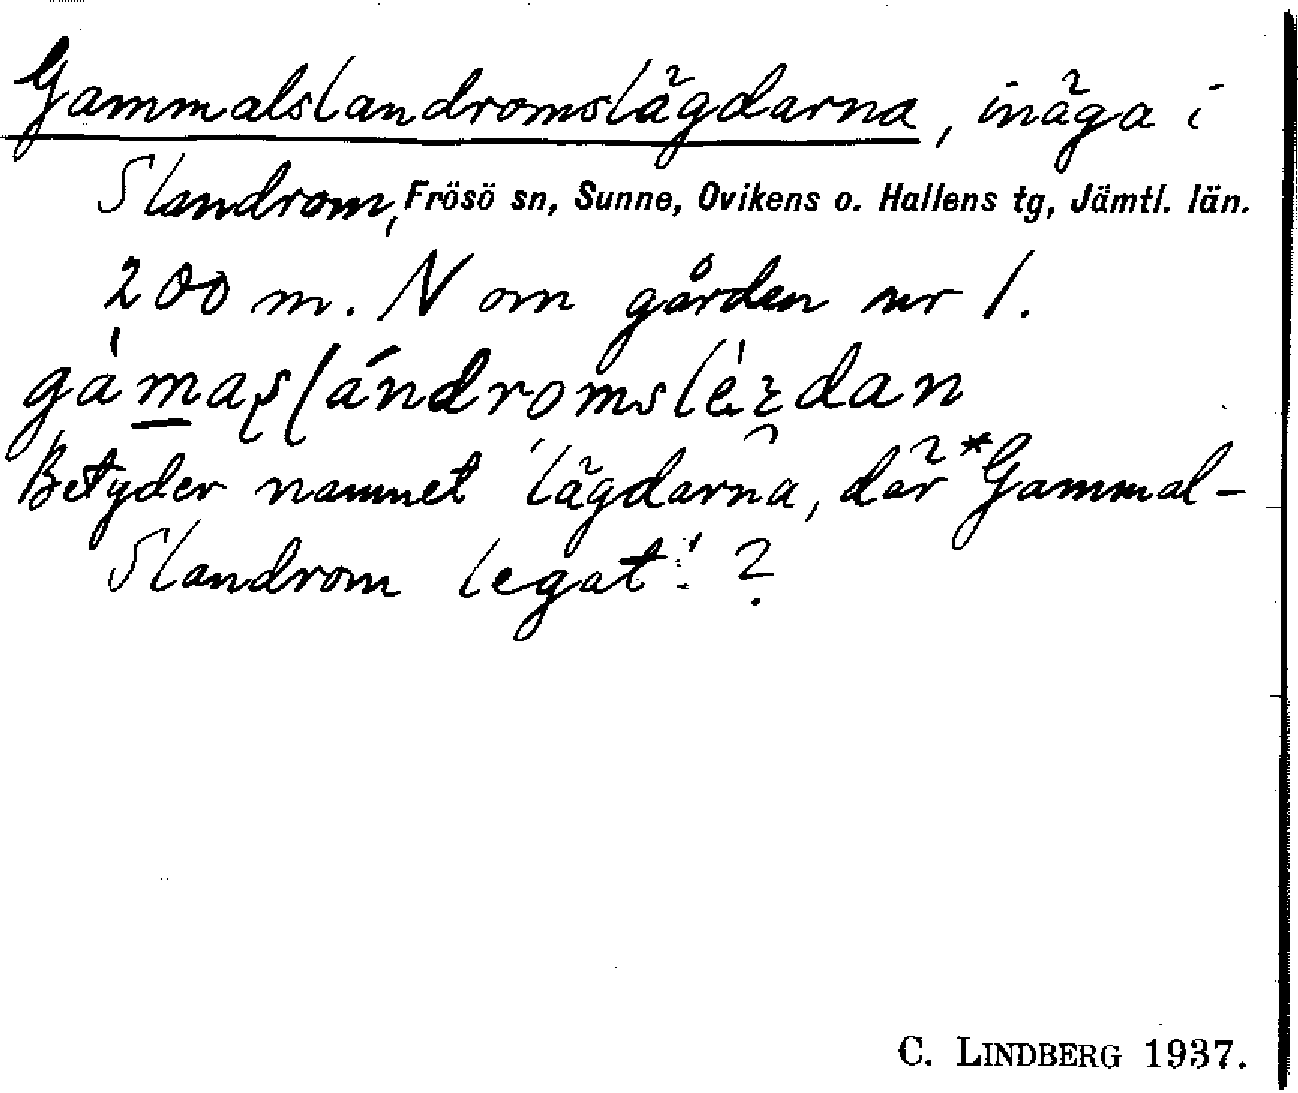 Gammalslandromslägdarna, inäga i
Slandrom, Frösö sn, Sunne, Ovikens o. Hallens tg, Jämtl. län.
200 m. N om gården nr 1.
Betyder namnet 'lägdarna, där *Gammal-
Slandrom legat'?
C. LINDBERG 1937.